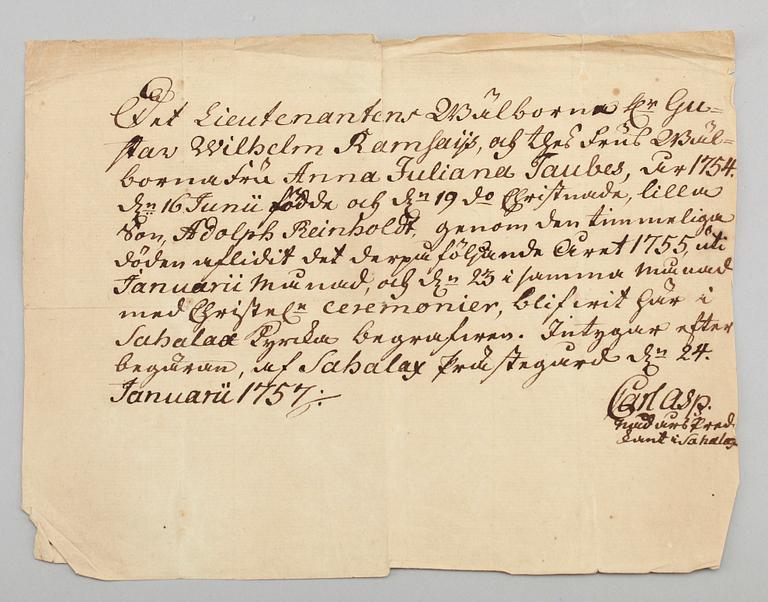 Det Lieutenantens Wälborne Hr Gu=
stav Wilhelm Ramsaijs, och thes Frus Wäl=
borna Fru Anna Juliana Taubes, åhr 1754.
dn 16 Junii födde och dn 19 do Christnade, lilla
Son, Adolph Reinholdt, genom den timmeliga
döden aflidit det derpå följande Året 1755, uti
Januarii Månad, och dn 23 i samma Månad
med Christeln ceremonier, blifwit här i
Sahalax Kyrka begrafwen. Intygar efter
begäran, af Sahalax Prästegård dn 24.
Januarii 1757.
Carl Asp.
Nådårs Pred.
cant i Sahalax